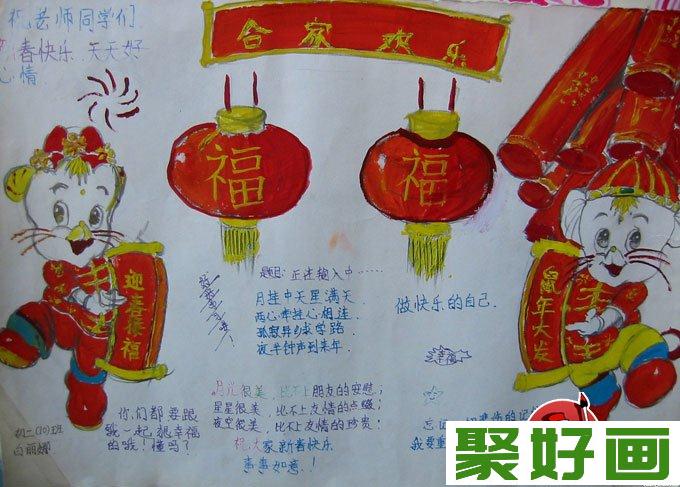 祝老师同学们
春快乐、天天好
心情
合家欢乐
福
福
迎春接福
鼠年大发
题目：正在输入中……
月挂中天星满天
两心牵挂心相连
孤寂异乡求学路
夜半钟声到来年.
做快乐的自己.
幸福
月光很美，比不上朋友的安慰；
星星很美，比不上友情的点缀；
夜空很美，比不上友情的珍贵；
祝大家新春快乐
事事如意.！
你们都要跟
我一起狠幸福
的哦！懂吗？
初二(10)班
白丽娜
忘记
悲伤的记
我要重
聚好画